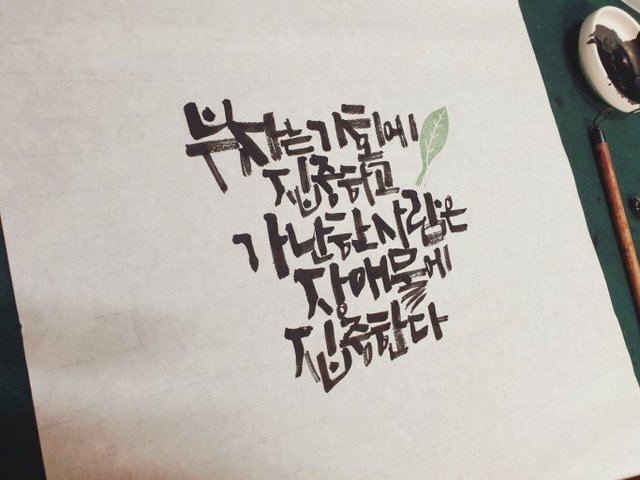 부자는 기회에
집중하고
가난한 사람은
장애물에
집중한다